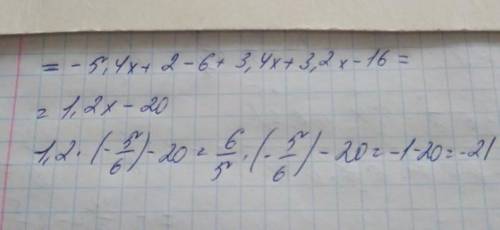 = - 5,4x + 2 - 6 + 3,4x + 3,2x - 16 =
= 1,2x - 20
1,2 · (- 5/6) - 20 = 6/5 · (- 5/6) - 20 = -1-20 = -21